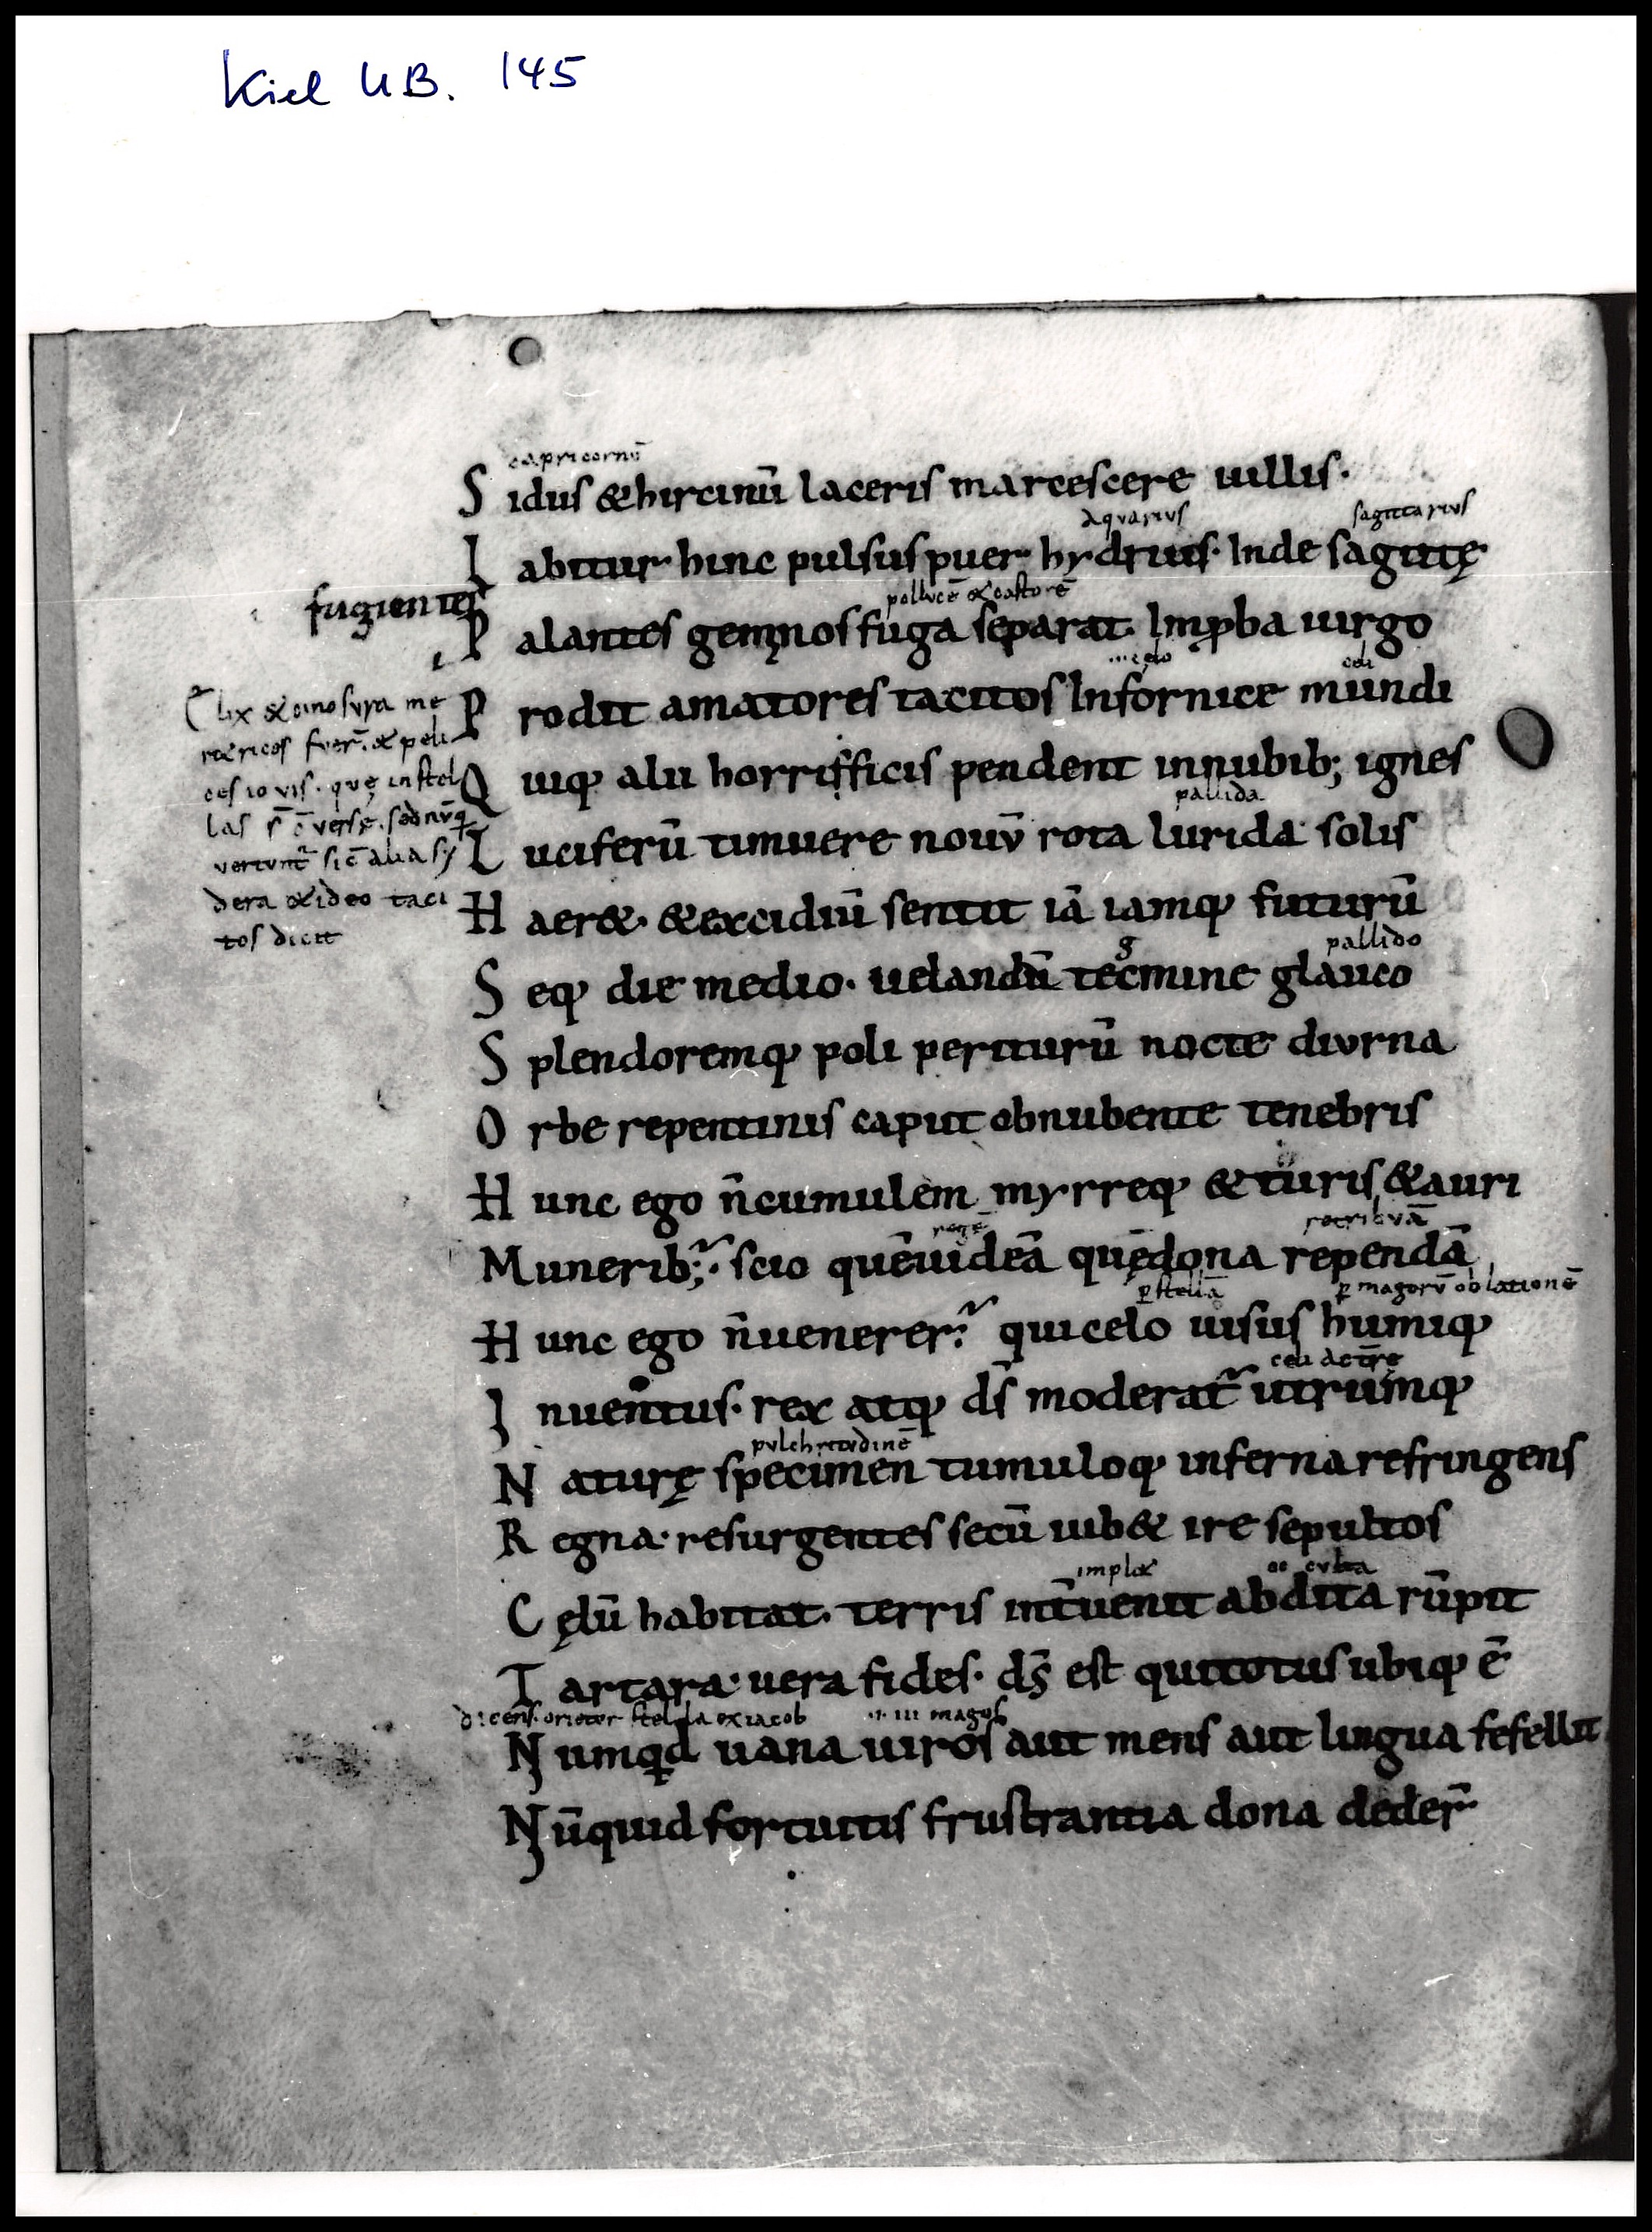 Kiel UB. 145
capricornū
S idus & hircinū laceris marcescere uillis·
aquarius sagittarius
L abitur hinc pulsus puer hydrius· Inde sagittę
fugientes
pollucē & castorē
P alantes gemnos fuga separat· Improba uirgo
celo celi
P rodit amatores tacitos In fornice mundi
Q uiq; alii horrifficis pendent in nubib; ignes
pallida
L uciferū timuere nouū rota lurida solis
H aer&· & excidiū sentit iā iamq; futurū
g pallido
S eq; die medio· uelandū tecmine glauco
S plendoremq; poli periturū nocte diurna
O rbe repentinis caput obnubente tenebris
H unc ego n̄ cumulem myrreq; & turis & auri
regē retribuā
M unerib;· scio quē uideā quę dona rependā
p stellā p magorū oblationē
H unc ego n̄ uenerer· qui celo uisus humiq;
I nuentus· rex atq; ds̄ moderat̃ utrumq;
pulchritudinē
N aturę specimen tumuloq; inferna refringens
R egna· resurgentes secū iub& ire sepultos
impl& occulta
C ęlū habitat· terris int̄uenit abdita rūpit
T artara· uera fides· ds̄ est qui totus ubiq; ē
dicens orietur stella ex iacob ·i· iii magos
N umqd uana uiros aut mens aut lingua fefellit
N ūquid fortuitis frustrantia dona deder̄
Elix & cinosura me
r&rices fuer̄· & peli
ces iouis· quę in stel
las s̄ c̄uersę· sed nūq
vertunt̃ sic̄ alia sy
dera & ideo taci
tos dicit